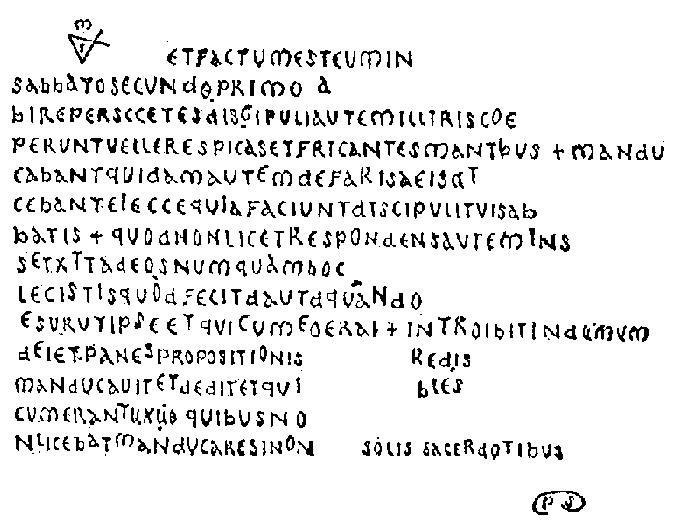 ETFACTUMESTEUMIN
SAbbATOSECUNdOPRIMO A
bIREPERSCCETESdISGIPULIAUTEMILLTRISCOE
PERUNTUELLERESPICASETFRICANTESMANTbUS + MANdU
CAbANTQUIdAMAUTEMdEFARISAEISdT
CEbANTEIECCEQUIAFACIUNTdISCIPULITUISAb
bATIS + QUOdNONLICETRESPONdENSAUTEMINS
SETXTTAdEOSNUMQUAMbOC
LECISTISQUOdFECITdAUTdQUANdO
ESURUTIPSEETQUICUMEOERAI + INTROIBITINdUMUM
dEIETPANESPROPOSITIONIS REdIS
MANdUCAUITETdEdITETQUI bLES
CUMERANTUXUO QUIBUSNO
NLICEbATMANdUCARESINON SOLIS SACERdOTIbUS
PS